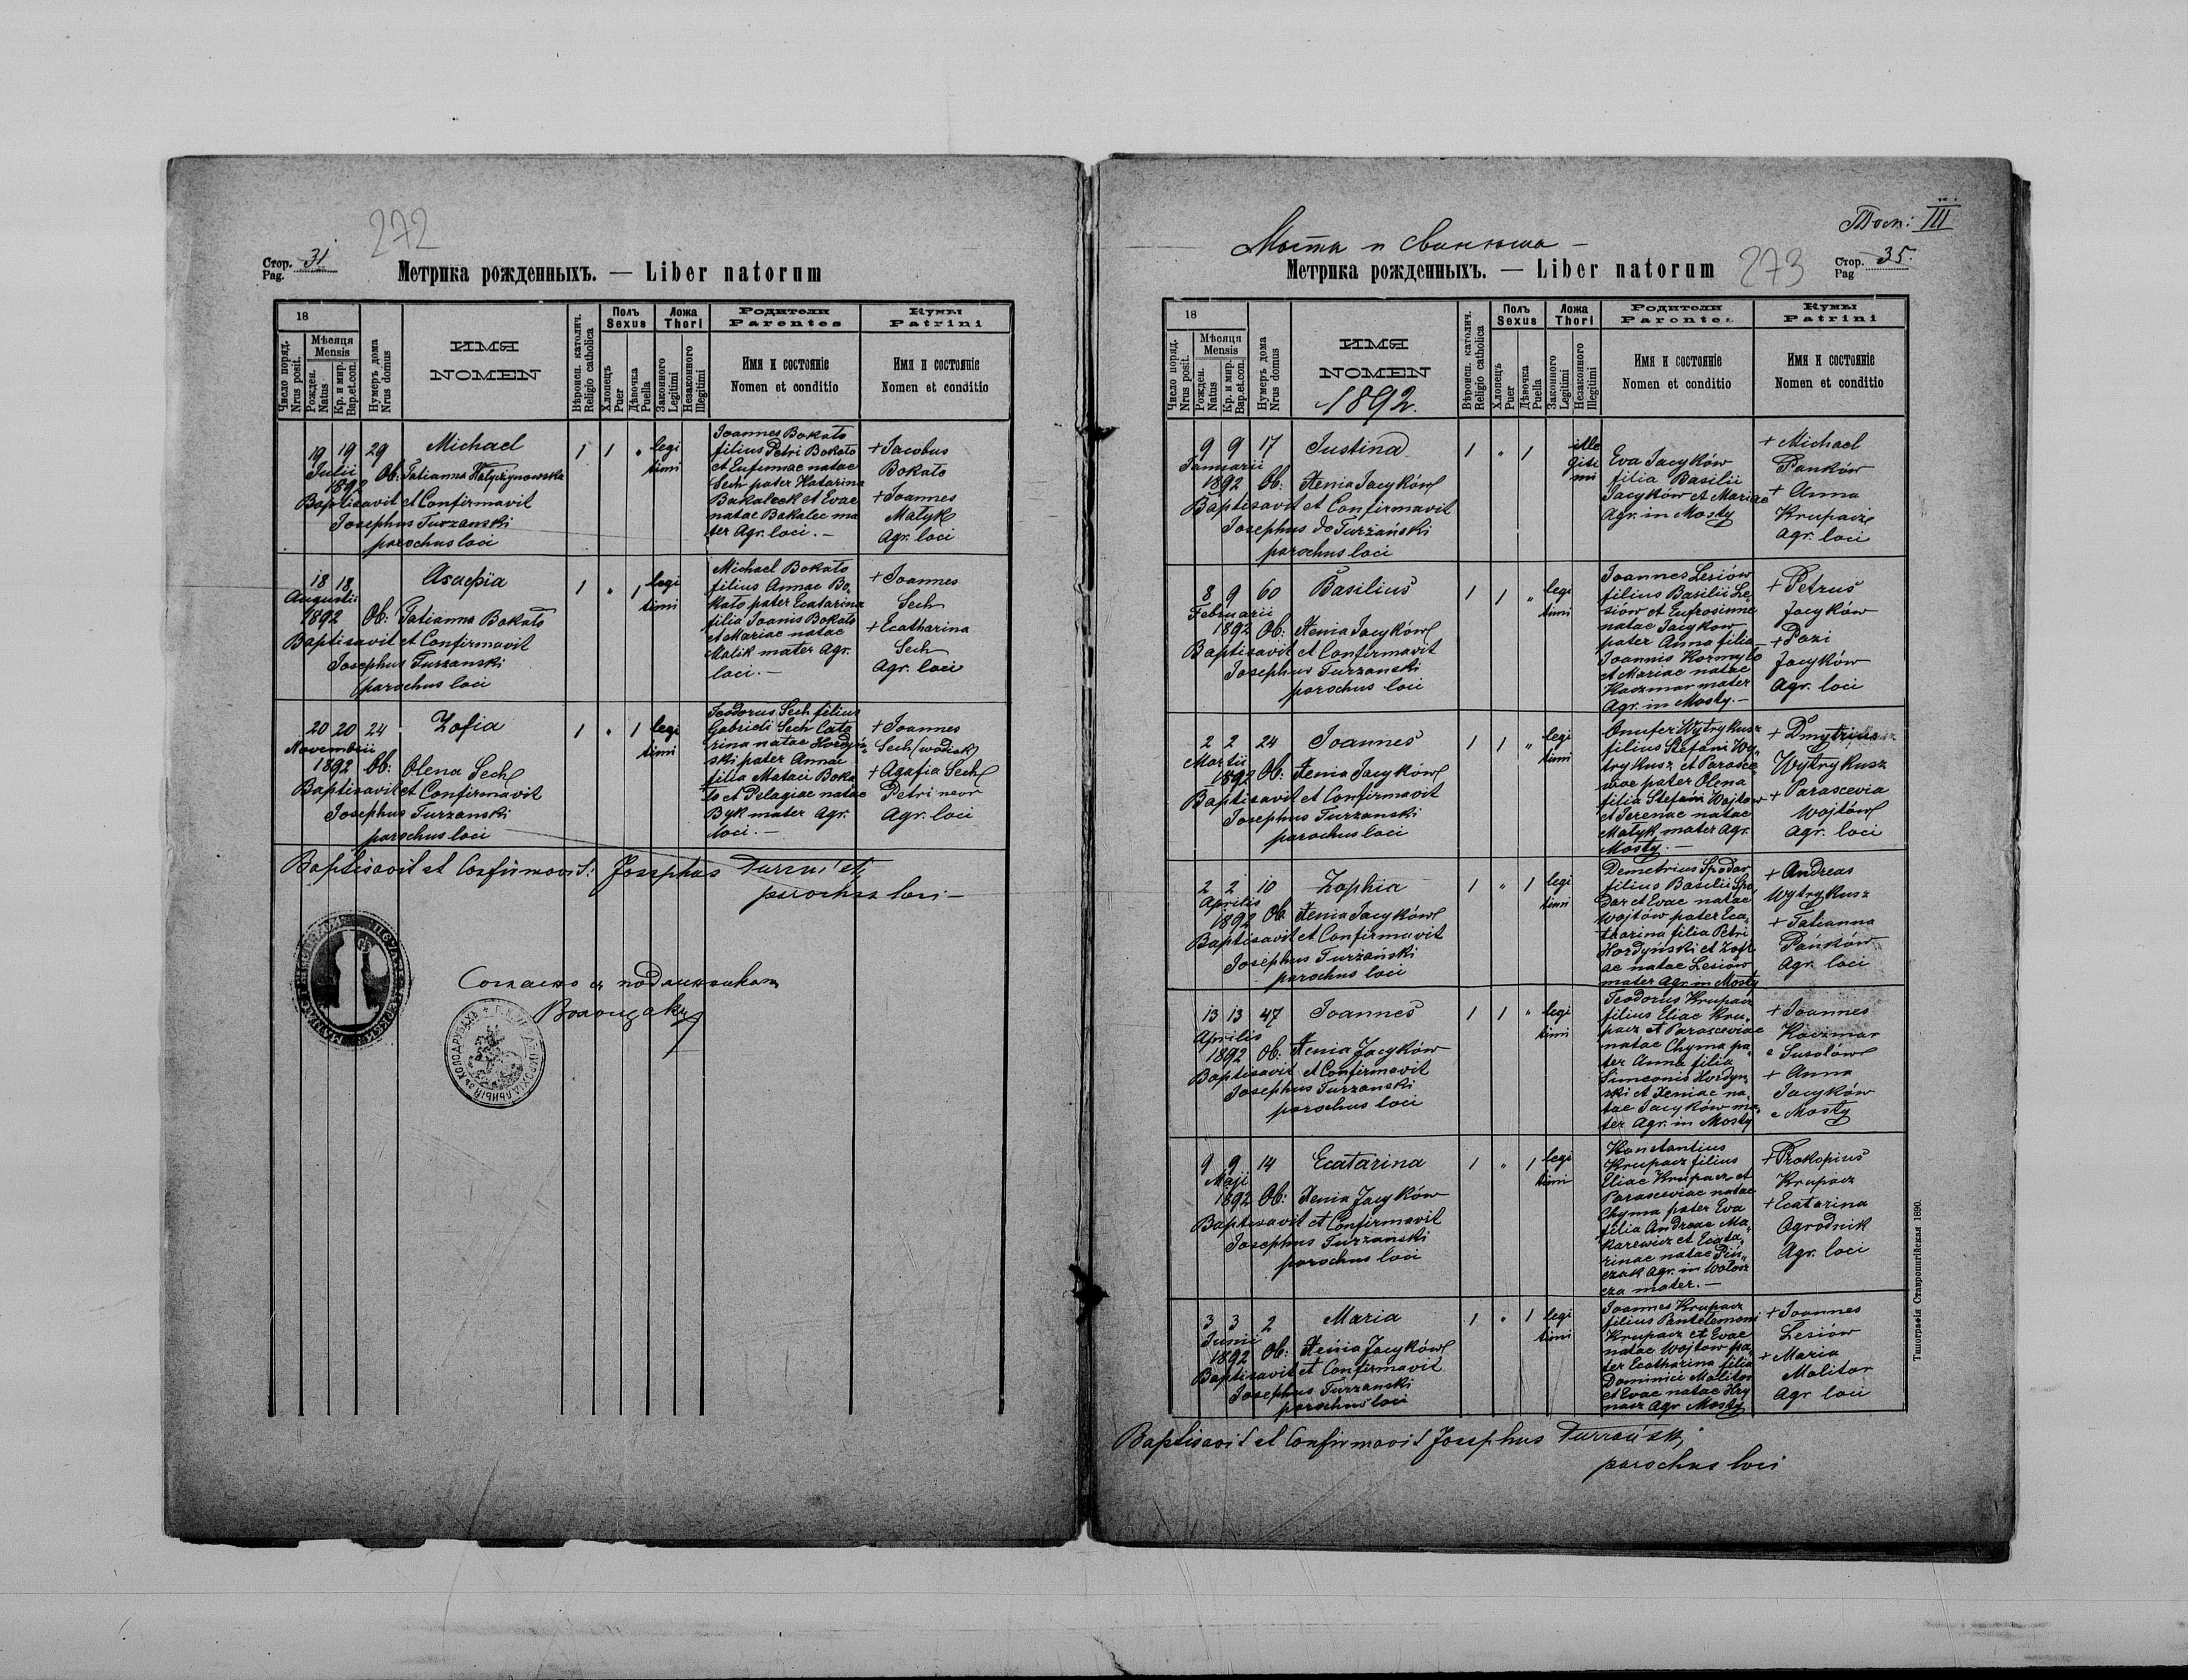 272
Стор. 31
Pag.
Метрика рожденныхъ. — Liber natorum
18
Число поряд.
Nrus posit.
Мѣсяця
Mensis
Рожден.
Natus
Кр. и мир.
Bap.et.con.
Нумеръ дома
Nrus domus
ИМЯ
NOMEN
Вѣроисп. католич.
Religio catholica
Полъ
Sexus
Хлопецъ
Puer
Дѣвочка
Puella
Ложа
Thori
Законного
Legitimi
Незаконного
Illegitimi
Родители
Parentes
Имя и состояніе
Nomen et conditio
Кумы
Patrini
Имя и состояніе
Nomen et conditio
19 19 29 Michael 1 1 " legi
timi
Julii
1892 Ob: Tatianna
Baptisavit et Confirmavit
Josephus Turzanski
parochus loci
Joannes Bokało
filius Petri Bokało
et Eufemiae natae
Sech pater Katarina
Bakaleck et Evae
natae Bakalec ma
ter Agr. loci. —
+ Jacobus
Bokało
+ Joannes
Matyk
Agr. loci
18 18 1 " 1 legi
timi
Augusti
1892 Ob: Tatianna Bokało
Baptisavit et Confirmavit
Josephus Turzanski
parochus loci
Michael Bokało
filius Annae Bo,
kało pater Ecatarina
filia Joanis Bokało
et Mariae natae
Matik mater Agr.
loci. —
+ Joannes
Sech
+ Ecatharina
Sech
Agr. loci
20 20 24 Zofia 1 " 1 legi
timi
Novembrii
1892 Ob: Olena Sech
Baptisavit et Confirmavit
Josephus Turzanski
parochus loci
Teodorus Sech filius
Gabrieli Sech Cate
rina natae Hordyń,
ski pater Annae
filia Mataei Boka
ło et Pelagiae natae
Byk mater Agr.
loci. —
+ Joannes
Sech
+ Agafia Sech
Petri
Agr. loci
Baptisavit et Confirmavit: Josephus
parochus loci —
Согласно с подлинником
Тост: III
Мосты и
273
Стор. 35.
Pag
Метрика рожденныхъ. — Liber natorum
18
Число поряд.
Nrus posit.
Мѣсяця
Mensis
Рожден.
Natus
Кр. и мир.
Bap.et.con.
Нумеръ дома
Nrus domus
ИМЯ
NOMEN
1892.
Вѣроисп. католич.
Religio catholica
Полъ
Sexus
Хлопецъ
Puer
Дѣвочка
Puella
Ложа
Thori
Законного
Legitimi
Незаконного
Illegitimi
Родители
Parentes
Имя и состояніе
Nomen et conditio
Кумы
Patrini
Имя и состояніе
Nomen et conditio
9 9 17 Justina 1 " 1 ille
giti
mi
Januarii
1892 Ob: Xenia Jacyków
Baptisavit et Confirmavit
Josephus de Turzański
parochus loci
Eva Jacyków
filia Basilii
Jacyków et Mariae
Agr. in Mosty
+ Michael
Panków
+ Anna
Krupacz
Agr. loci
8 9 60 Basilius 1 1 " legi
timi
Februarii
1892 Ob: Xenia Jacyków
Baptisavit et Confirmavit
Josephus Turzanski
parochus loci
Joannes Lesiów
filius Basilii Le,
siów et Eufrosinne
natae Jacykow
pater Anna filia
Joannis Kormyło
et Mariae natae
Kaczmar mater
Agr. in Mosty. —
+ Petrus
Jacyków
+ Pazi
Jacyków
Agr. loci
2 2 24 Joannes 1 1 " legi
timi
Martii
1892 Ob: Xenia Jacyków
Baptisavit et Confirmavit
Josephus Turzanski
parochus loci
Onufer Wytrykusz
filius Stefani Wy,
trykusz et Parasce,
wae pater Olena
filia Stefani Wojtow
et Terenae natae
Matyk mater Agr.
Mosty. —
+ Dmytrius
Wytrykusz
+ Parascevia
Wojtów
Agr. loci
2 2 10 Zophia 1 " 1 legi
timi
Aprilis
1892 Ob Xenia Jacyków
Baptisavit et Confirmavit
Josephus Turzański
parochus loci
Demetrius Spodar
filius Basilii Spo
dar et Evae natae
Wojtów pater Eca,
tharina filia Petri
Hordyński et Zofi
ae natae Lesiów
mater Agr. in Mosty
+ Andreas
Wytrykusz
+ Tatianna
Pańków
Agr. loci
13 13 47 Joannes 1 1 " legi
timi
Aprilis
1892 Ob: Xenia Jacyków
Baptisavit et Confirmavit
Josephus Turzanski
parochus loci
Teodorus Krupacz
filius Eliae Kru,
pacz et Parasceviae
natae Chyma pa,
ter Anna filia
Simeonis Hordyn,
ski et Xeniae na,
tae Jacyków ma,
ter Agr. in Mosty
+ Joannes
Kaczmar
e Susołów
+ Anna
Jacyków
e Mosty
9 9 14 Ecatarina 1 " 1 legi
timi
Maji
1892 Ob: Xenia Jacyków
Baptisavit et Confirmavit
Josephus Turzanski
parochus loci
Konstantius
Krupacz filius
Eliae Krupacz et
Parasceviae natae
Chyma pater Eva
filia Andreae Ma,
karewicz et Ecata,
rinae natae Piń,
czak Agr. in Wołosz
cza mater. —
+ Prokopius
Krupacz
+ Ecatarina
Agrodnik
Agr. loci
3 3 2 Maria 1 " 1 legi
timi
Junii
1892 Ob: Xenia Jacyków
Baptisavit et Confirmavit
Josephus Turzanski
parochus loci
Joannes Krupacz
filius Pantelemoni
Krupacz et Evae
natae Wojtow pa,
ter Ecatharina filia
Dominici Molitor
et Evae natae Hry
nasz Agr Mosty
+ Joannes
Lesiów
+ Maria
Molitor
Agr loci
Baptisavit et Confirmavit Josephus Turzański
parochus loci
Типографія Ставропигійская 1890.